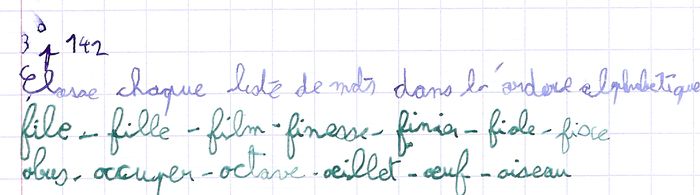 3° p 142
Classe chaque liste de mots dans l'ordre alphabétique
file - fille - film - finesse - finir - fiole - fixe
obus - occuper - octave - œillet - œuf - oiseau